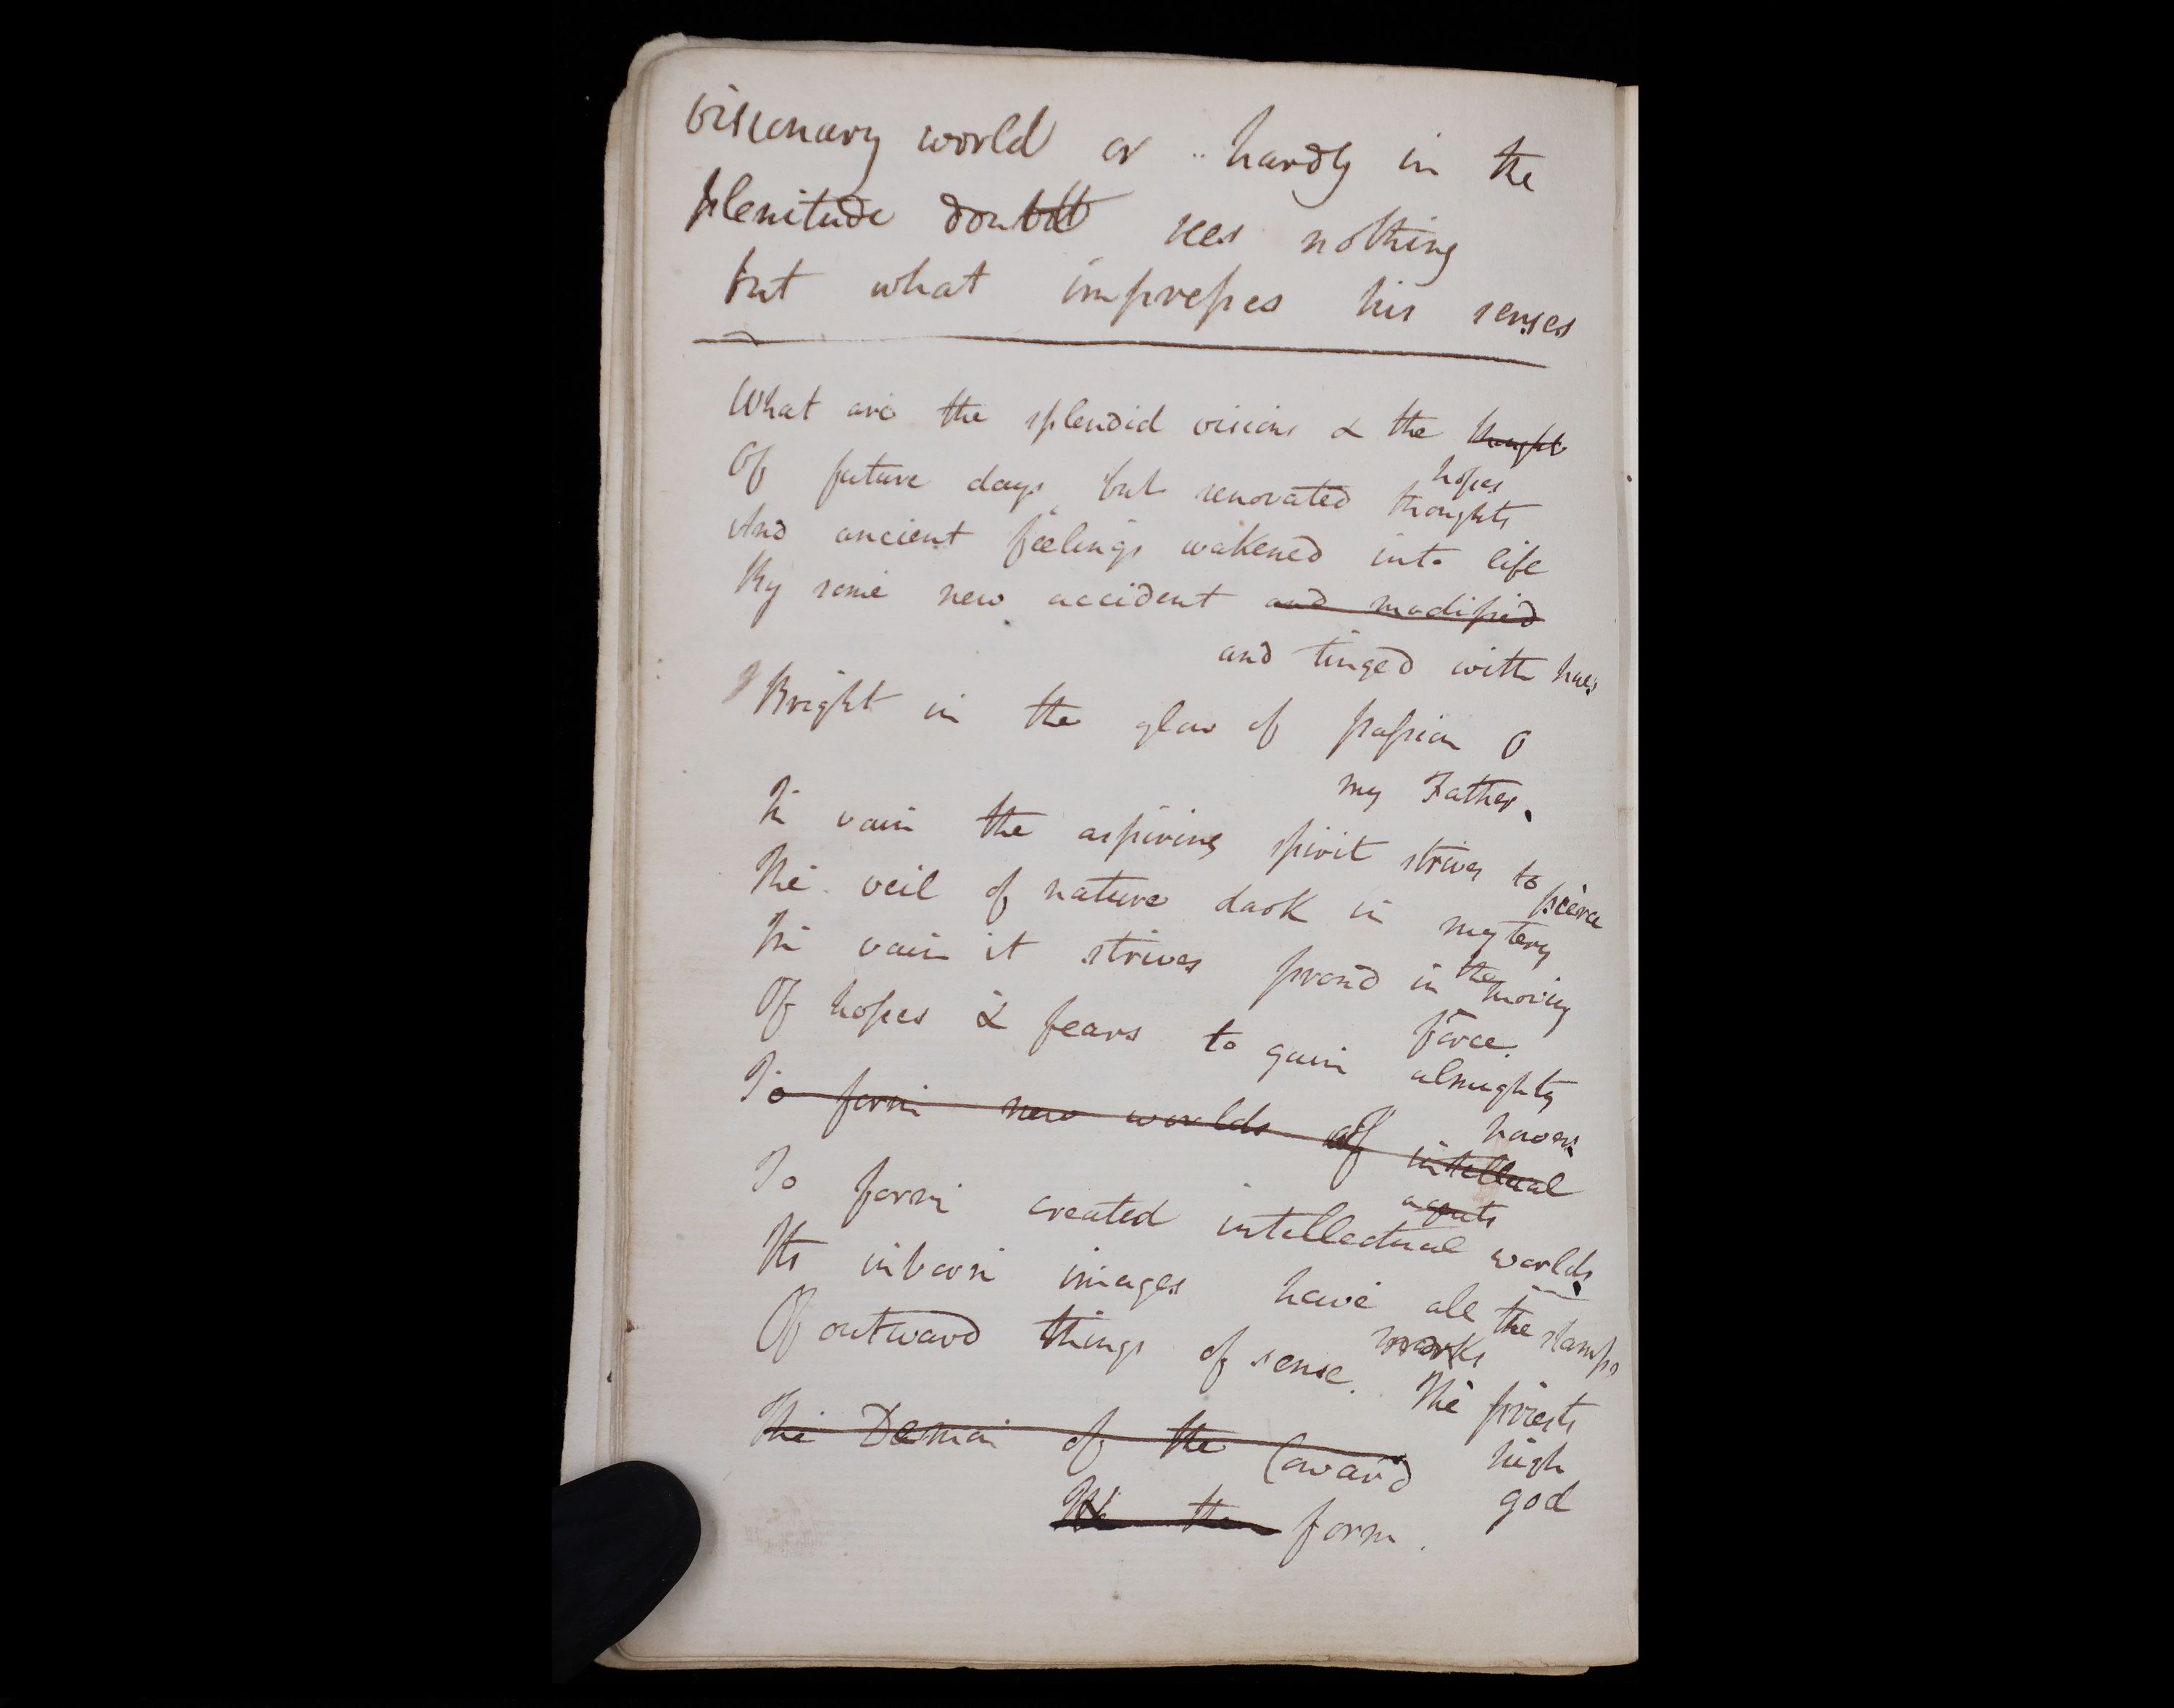 visionary world or hardly in the
plenitude doubt sees nothing
but what impresses his senses
What are the splendid visions & the thought
hopes
Of future days, but renovated thoughts
And ancient feelings wakened into life
By some new accident and modified
and tinged with hues
Bright in the glow of passion O
my Father.
In vain the aspiring spirit strives to pierce
The veil of nature dark in mystery
In vain it strives proud in the moving
force
Of hopes & fears to gain almighty
power
To form new worlds of intellual
agents
To form created intellectual worlds.
Its inborn images have all the stamps
marks
Of outward things of sense. The priests
high
god
The Demon of the Coward
form.